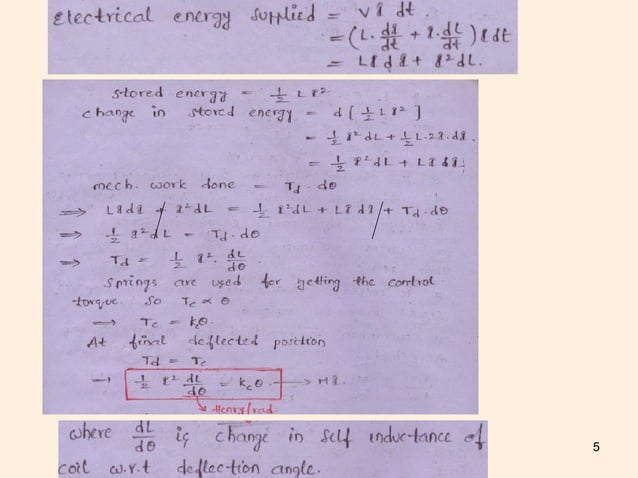 Electrical energy supplied = V i dt.
= (L. di/dt + i. dL/dt) i dt
= L i d i + i² dL.
stored energy = 1/2 L i²
change in stored energy = d [ 1/2 L i² ]
= 1/2 i² dL + 1/2 L. 2i. di.
= 1/2 i² dL + L i di.
mech. work done = Td . dθ
⇒ L i di + i² dL = 1/2 i² dL + L i di + Td . dθ
⇒ 1/2 i² dL = Td . dθ
⇒ Td = 1/2 i². dL/dθ .
Springs are used for getting the control
torque. So Tc ∝ θ
⇒ Tc = kcθ.
At final deflected position
Td = Tc
→ 1/2 i² dL/dθ = kcθ. → MI.
→ Henry/rad.
where dL/dθ is change in self inductance of
coil w.r.t deflection angle.
5